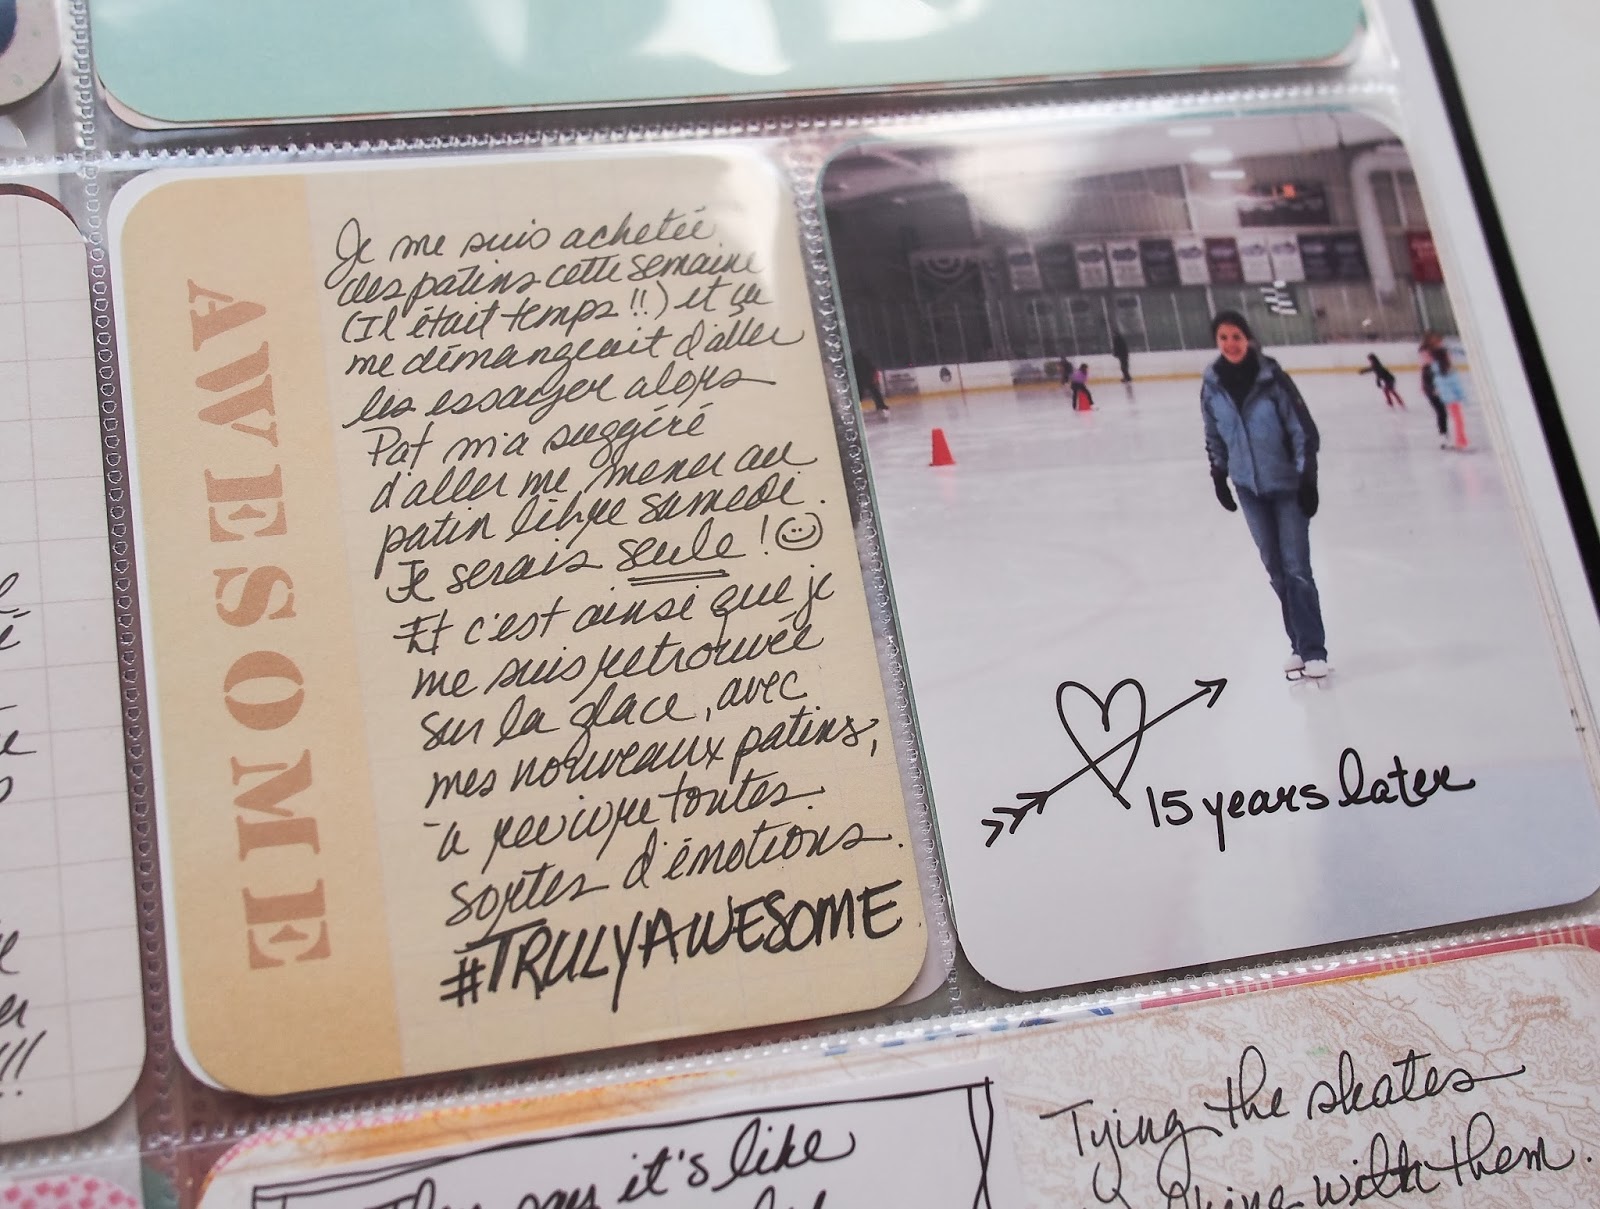 AWESOME
Je me suis achetée
des patins cette semaine
(Il était temps!!) et ça
me démangeait d'aller
les essayer alors
Pat m'a suggéré
d'aller me mener au
patin libre samedi.
Je serais seule!
Et c'est ainsi que je
me suis retrouvée
sur la glace, avec
mes nouveaux patins,
à revivre toutes
sortes d'émotions.
#TRULYAWESOME
15 years later
say it's like
Tying the skates
with them.